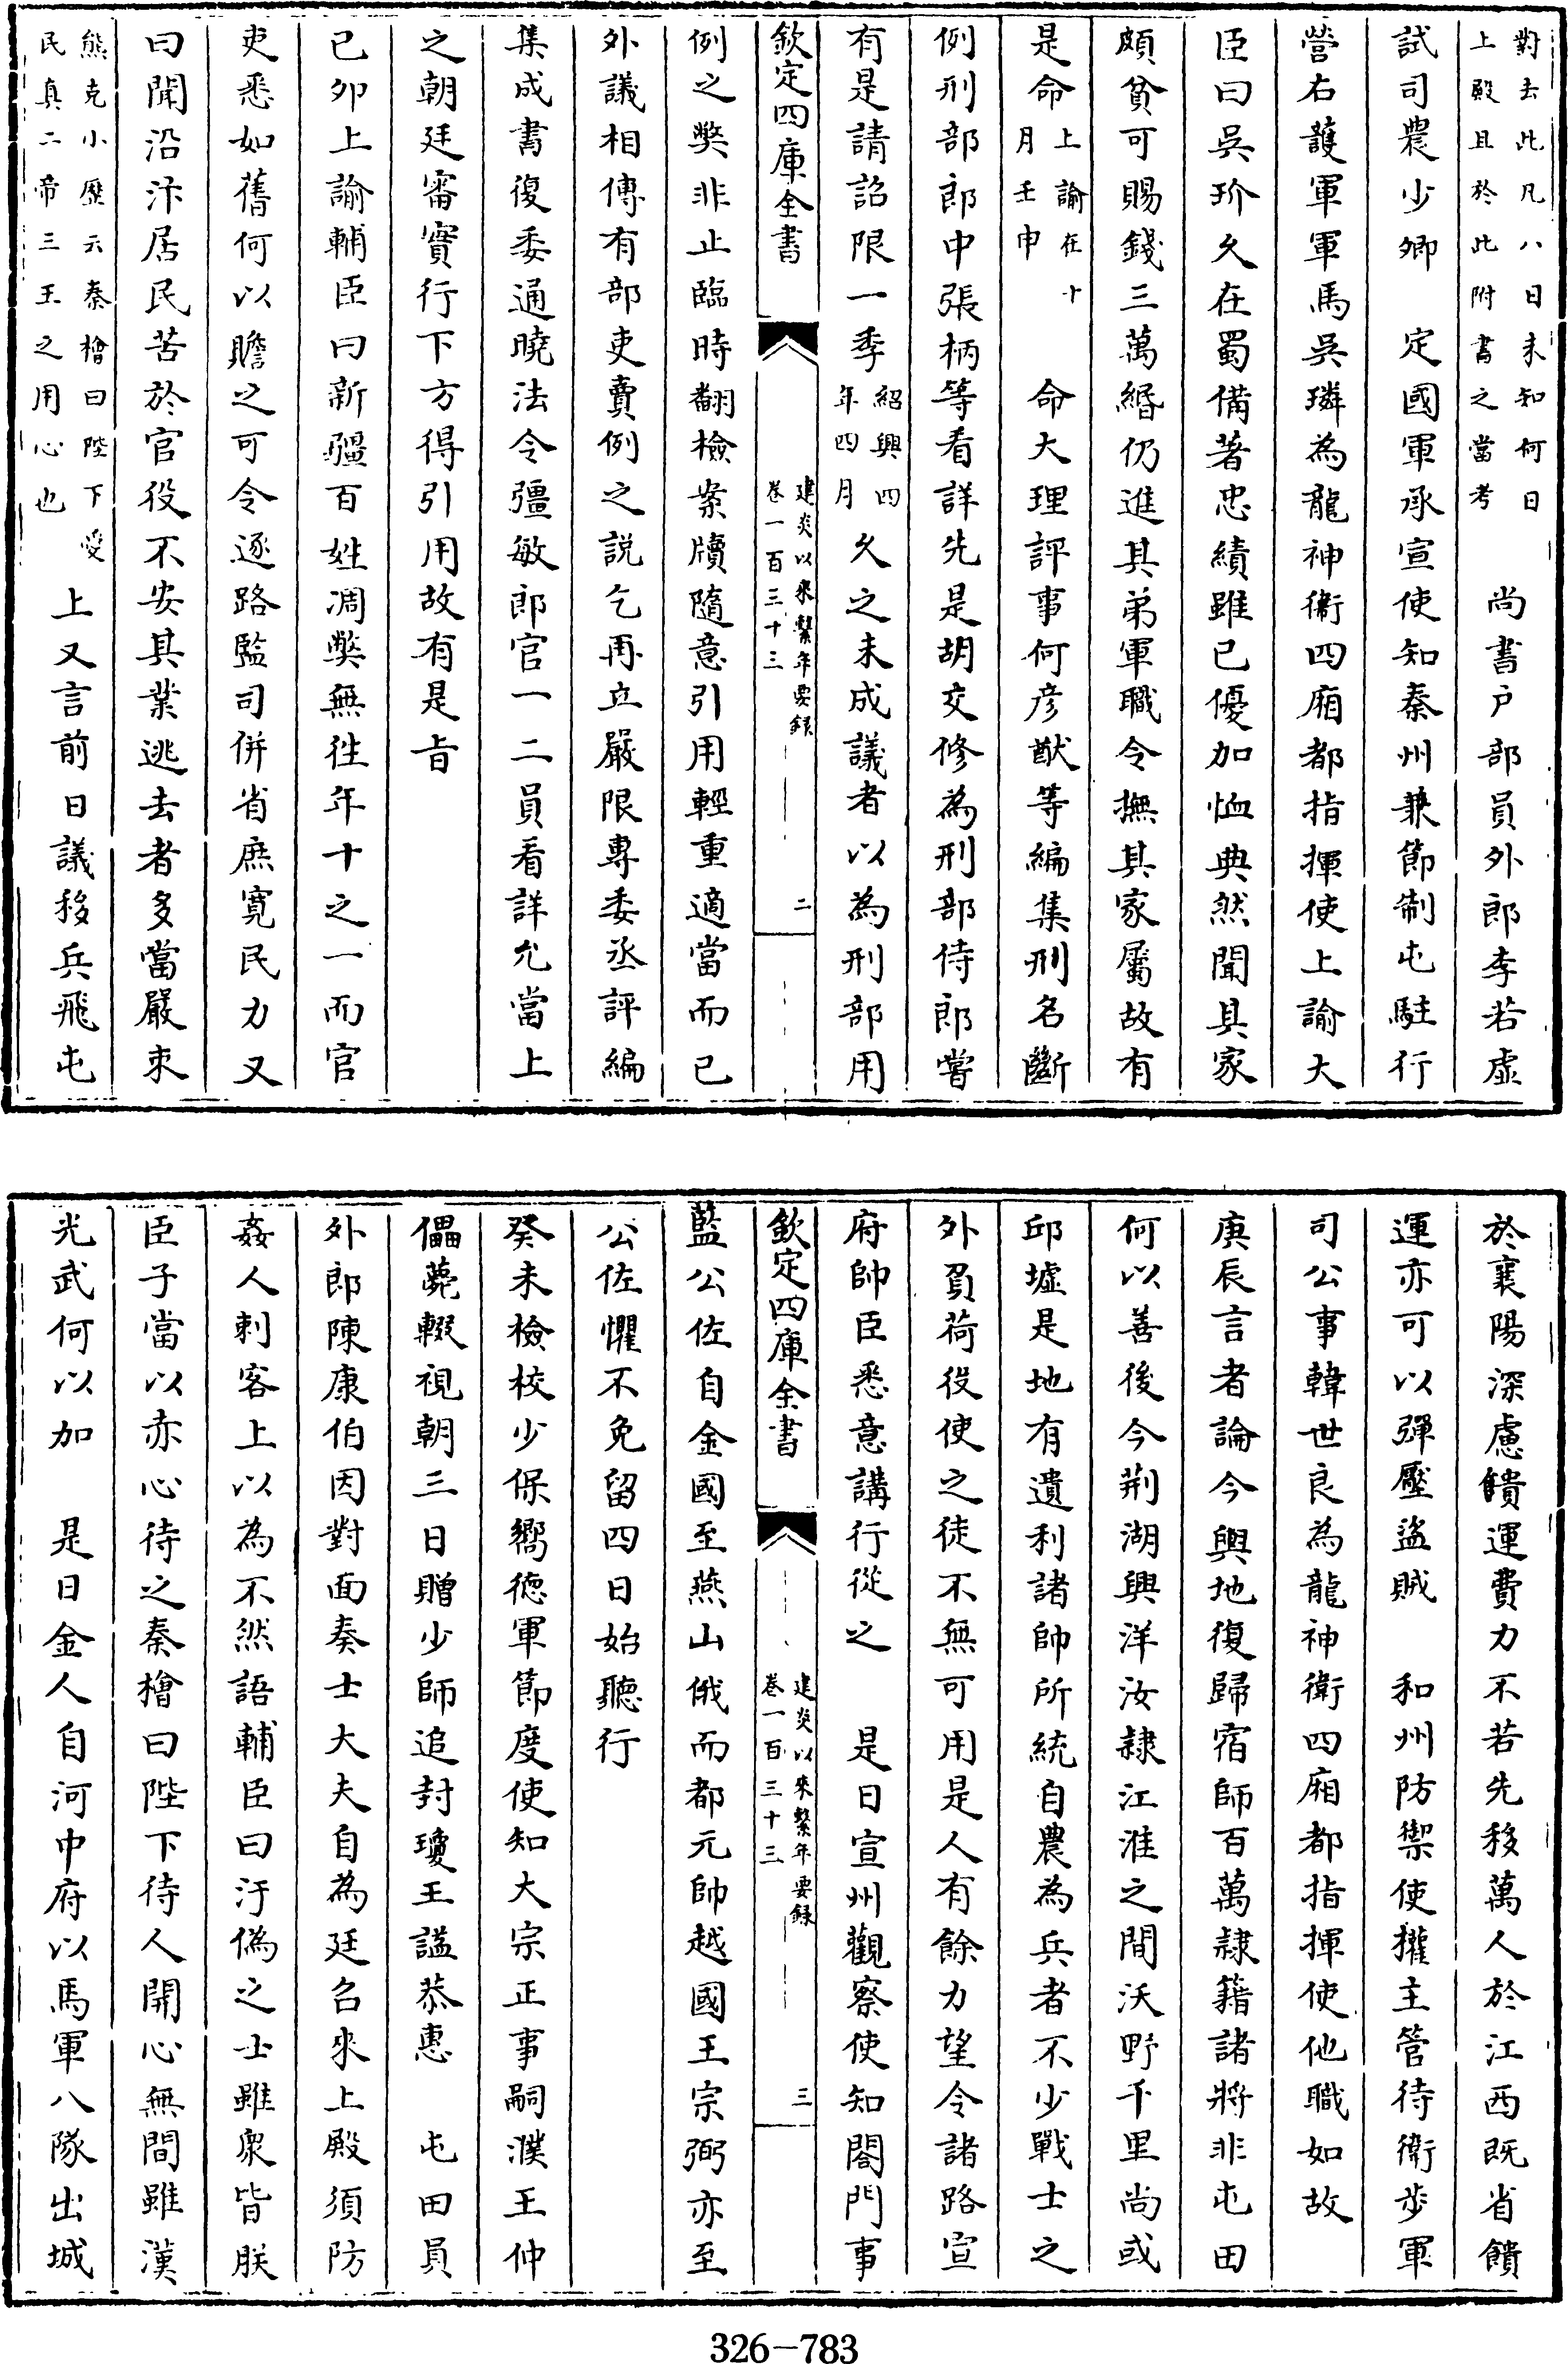 對去此凡八日未知何日
上殿且於此附書之當考
尚書户部員外郎李若虚
試司農少卿　定國軍承宣使知秦州兼節制屯駐行
營右護軍軍馬吳璘為龍神衞四廂都指揮使上諭大
臣曰吳玠久在蜀備著忠績雖已優加恤典然聞其家
頗貧可賜錢三萬緡仍進其弟軍職令撫其家屬故有
是命
上諭在十
月壬申
命大理評事何彦猷等編集刑名斷
例刑部郎中張柄等看詳先是胡交修為刑部侍郎嘗
有是請詔限一季
紹興四
年四月
久之未成議者以為刑部用
欽定四庫全書
建炎以來繫年要録
卷一百三十三
二
例之獘非止臨時翻檢案牘隨意引用輕重適當而已
外議相傳有部吏賣例之説乞再立嚴限專委丞評編
集成書復委通曉法令彊敏郎官一二員看詳允當上
之朝廷審實行下方得引用故有是旨
己卯上諭輔臣曰新疆百姓凋獘無徃年十之一而官
吏悉如舊何以贍之可令逐路監司併省庶寛民力又
曰聞沿汴居民苦於官役不安其業逃去者多當嚴束
熊克小歷云秦檜曰陛下愛
民真二帝三王之用心也
上又言前日議移兵飛屯
於襄陽深慮饋運費力不若先移萬人於江西既省饋
運亦可以彈壓盗賊　和州防禦使權主管待衛步軍
司公事韓世良為龍神衛四廂都指揮使他職如故
庚辰言者論今興地復歸宿師百萬隷籍諸將非屯田
何以善後今荆湖興洋汝隷江淮之間沃野千里尚或
邱墟是地有遺利諸帥所統自農為兵者不少戰士之
外負荷役使之徒不無可用是人有餘力望令諸路宣
府帥臣悉意講行從之　是日宣州觀察使知閤門事
欽定四庫全書
建炎以來繫年要録
卷一百三十三
三
藍公佐自金國至燕山俄而都元帥越國王宗弼亦至
公佐懼不免留四日始聽行
癸未檢校少保嚮德軍節度使知大宗正事嗣濮王仲
儡薨輟視朝三日贈少師追封瓊王諡恭惠　屯田員
外郎陳康伯因對面奏士大夫自為廷召來上殿須防
姦人刺客上以為不然語輔臣曰汙偽之士雖衆皆朕
臣子當以赤心待之秦檜曰陛下待人開心無間雖漢
光武何以加　是日金人自河中府以馬軍八隊出城
326—783